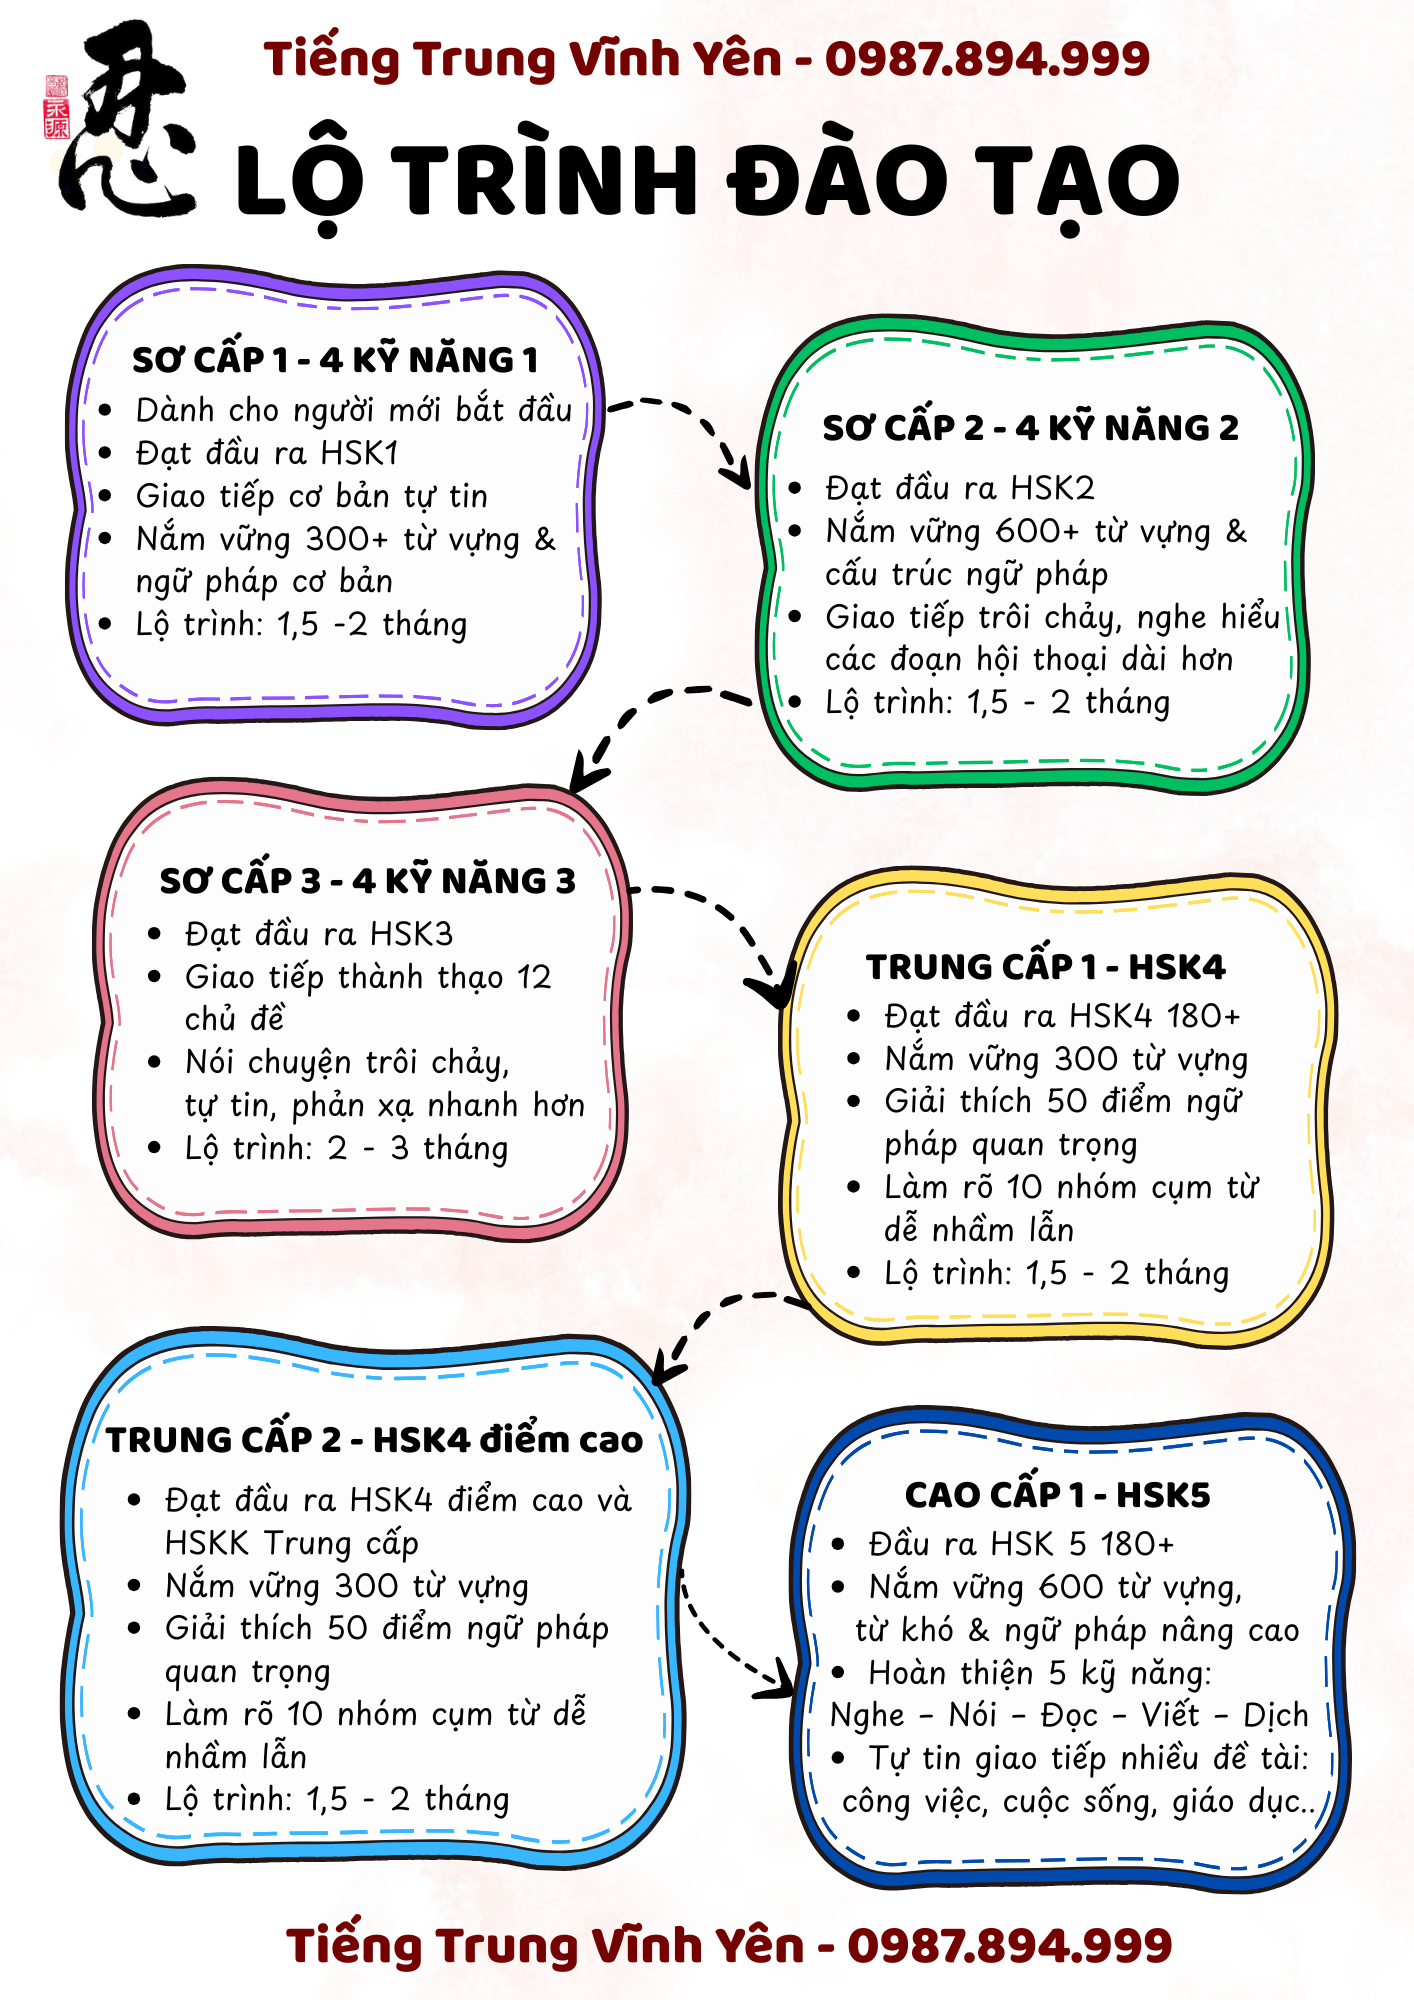 Tiếng Trung Vĩnh Yên - 0987.894.999
忍
永源
LỘ TRÌNH ĐÀO TẠO
SƠ CẤP 1 - 4 KỸ NĂNG 1
• Dành cho người mới bắt đầu
• Đạt đầu ra HSK1
• Giao tiếp cơ bản tự tin
• Nắm vững 300+ từ vựng &
ngữ pháp cơ bản
• Lộ trình: 1,5 -2 tháng
SƠ CẤP 2 - 4 KỸ NĂNG 2
• Đạt đầu ra HSK2
• Nắm vững 600+ từ vựng &
cấu trúc ngữ pháp
• Giao tiếp trôi chảy, nghe hiểu
các đoạn hội thoại dài hơn
• Lộ trình: 1,5 - 2 tháng
SƠ CẤP 3 - 4 KỸ NĂNG 3
• Đạt đầu ra HSK3
• Giao tiếp thành thạo 12
chủ đề
• Nói chuyện trôi chảy,
tự tin, phản xạ nhanh hơn
• Lộ trình: 2 - 3 tháng
TRUNG CẤP 1 - HSK4
• Đạt đầu ra HSK4 180+
• Nắm vững 300 từ vựng
• Giải thích 50 điểm ngữ
pháp quan trọng
• Làm rõ 10 nhóm cụm từ
dễ nhầm lẫn
• Lộ trình: 1,5 - 2 tháng
TRUNG CẤP 2 - HSK4 điểm cao
• Đạt đầu ra HSK4 điểm cao và
HSKK Trung cấp
• Nắm vững 300 từ vựng
• Giải thích 50 điểm ngữ pháp
quan trọng
• Làm rõ 10 nhóm cụm từ dễ
nhầm lẫn
• Lộ trình: 1,5 - 2 tháng
CAO CẤP 1 - HSK5
• Đầu ra HSK 5 180+
• Nắm vững 600 từ vựng,
từ khó & ngữ pháp nâng cao
• Hoàn thiện 5 kỹ năng:
Nghe – Nói – Đọc – Viết – Dịch
• Tự tin giao tiếp nhiều đề tài:
công việc, cuộc sống, giáo dục..
Tiếng Trung Vĩnh Yên - 0987.894.999